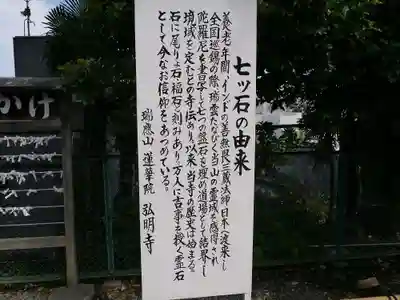 七ツ石の由来
養老年間、インドの善無畏三蔵法師、日本へ渡来し
全国巡錫の際、瑞雲たなびく当山の霊域を感得され
陀羅尼を書写して七つの盤石を埋め道場として結界し
境域を定むとの寺伝あり。以来、当寺の歴史は始まる。
石に尾り石、福石と刻みあり。万人に吉事を授く霊石
として今なお信仰をあつめている。
瑞應山 蓮華院 弘明寺
かけ